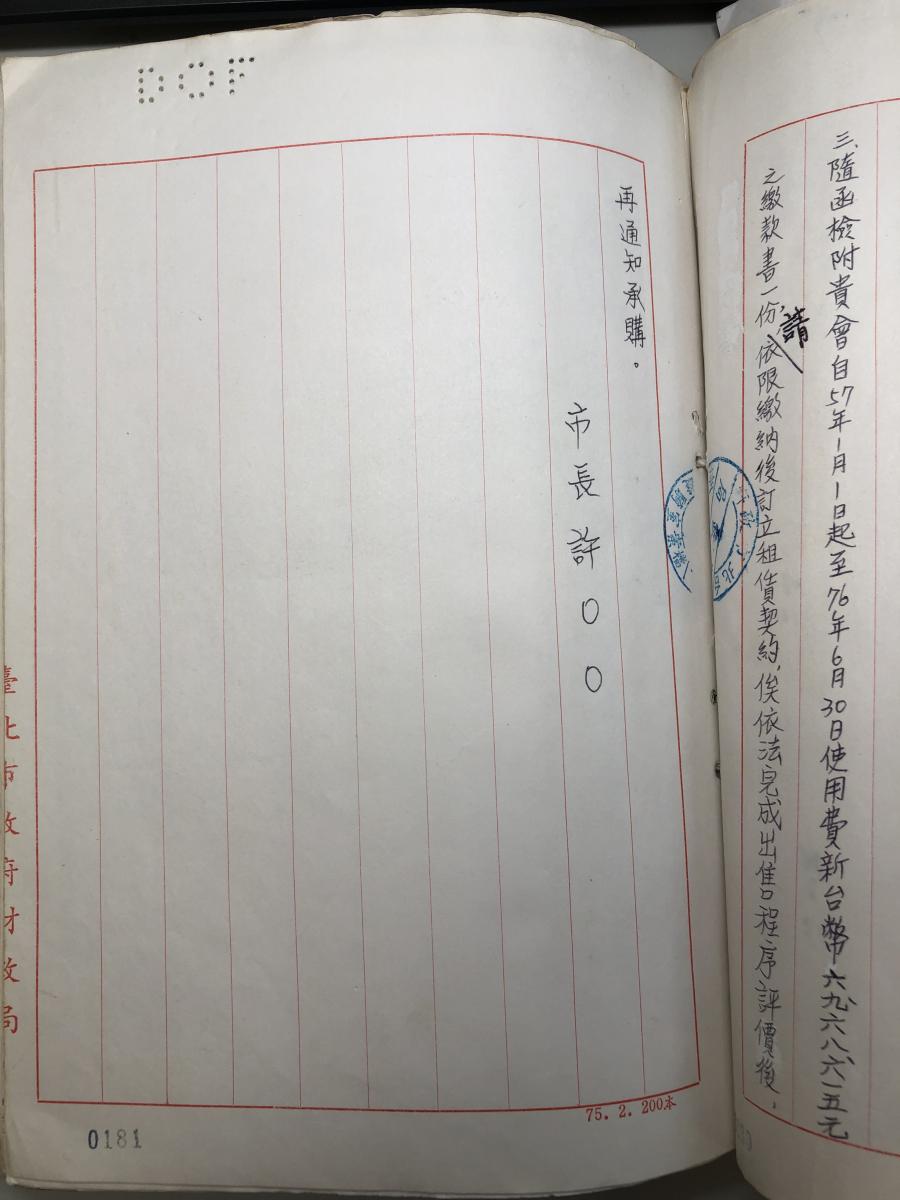 三、隨函檢附貴會自57年1月1日起至76年6月30日使用費新台幣六九、六八、六一五元
之繳款書一份,請依限繳納後訂立租賃契約,俟依法完成出售程序評價後,
DOF
再通知承購。
市長許〇〇
臺北市政府財政局
75. 2. 200本
0181